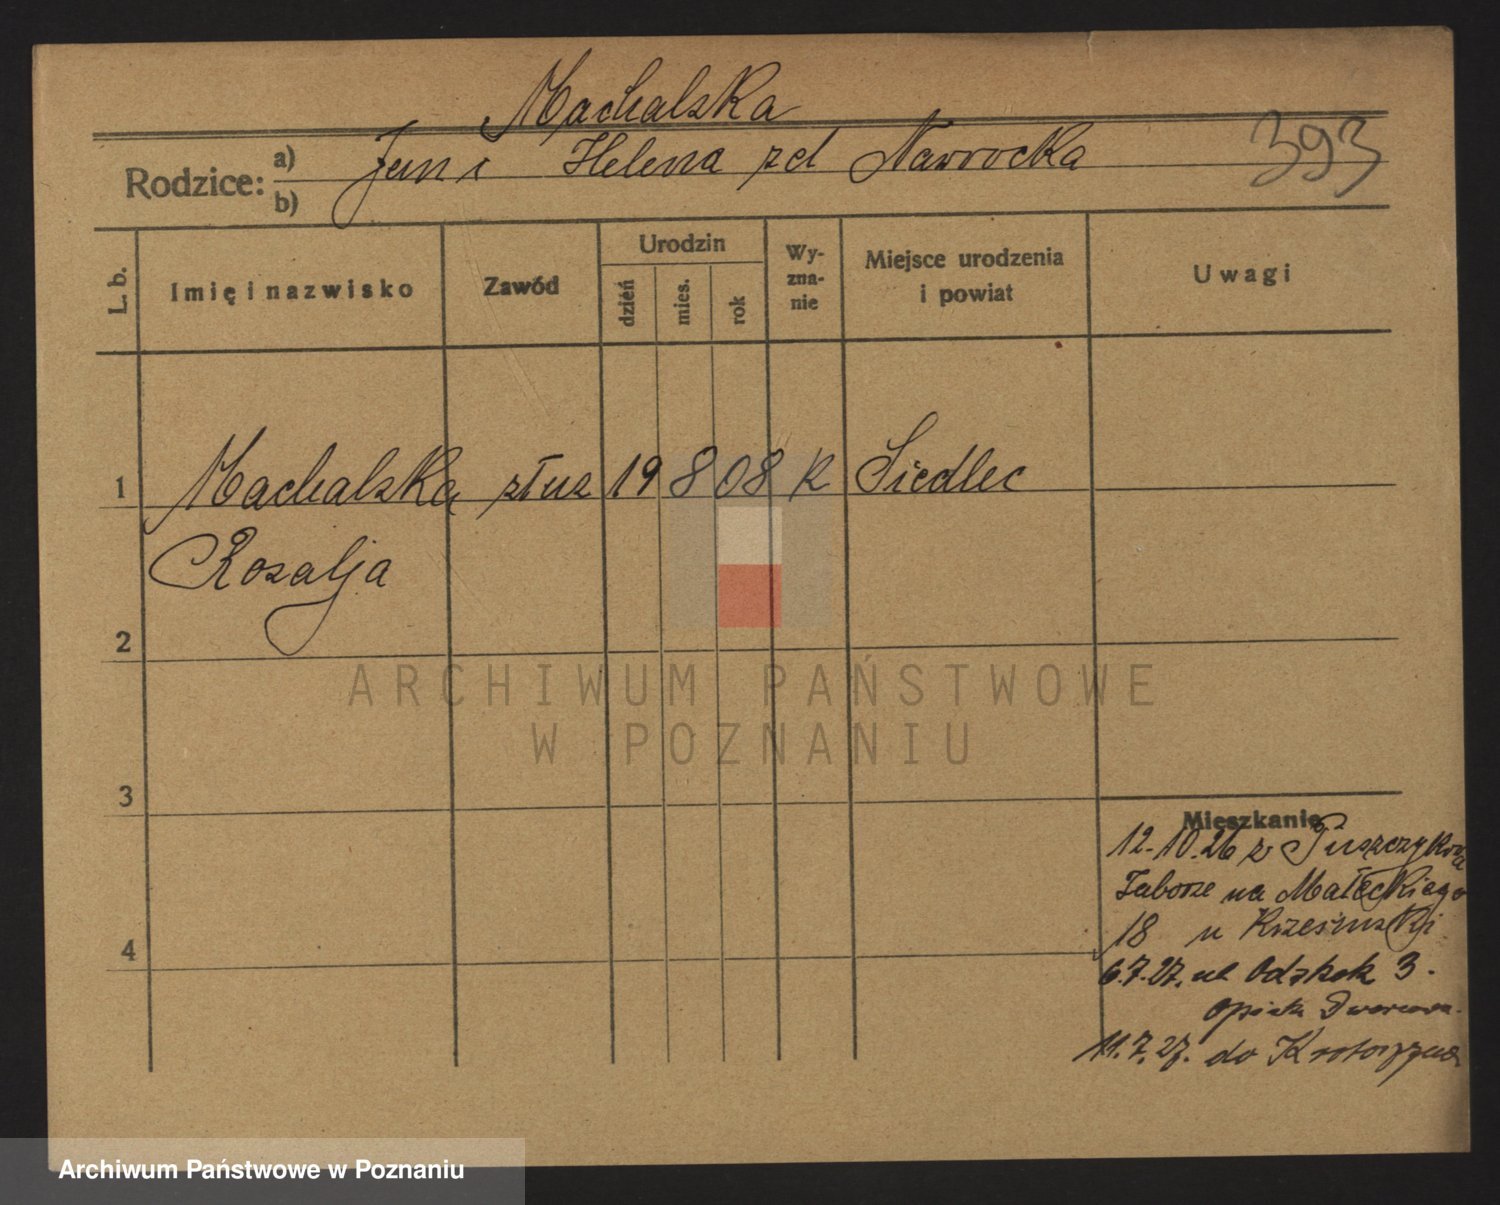 Machalska
393
Rodzice:
a) Jan i Helena zd Nawrocka
b)
L. b.
Imię i nazwisko
Zawód
Urodzin
dzień
mies.
rok
Wy-
zna-
nie
Miejsce urodzenia
i powiat
Uwagi
1 Machalska służ 19 8 08 k Siedlec
Rozalja
2
3
4
Mieszkanie
12.10.26 z Puszczykowa
Zaborze na Małeckiego
18 u
6.7.27. ul 3.
opieka Dworcowa
11.7.27. do Krotoszyna
ARCHIWUM PAŃSTWOWE
W POZNANIU
Archiwum Państwowe w Poznaniu